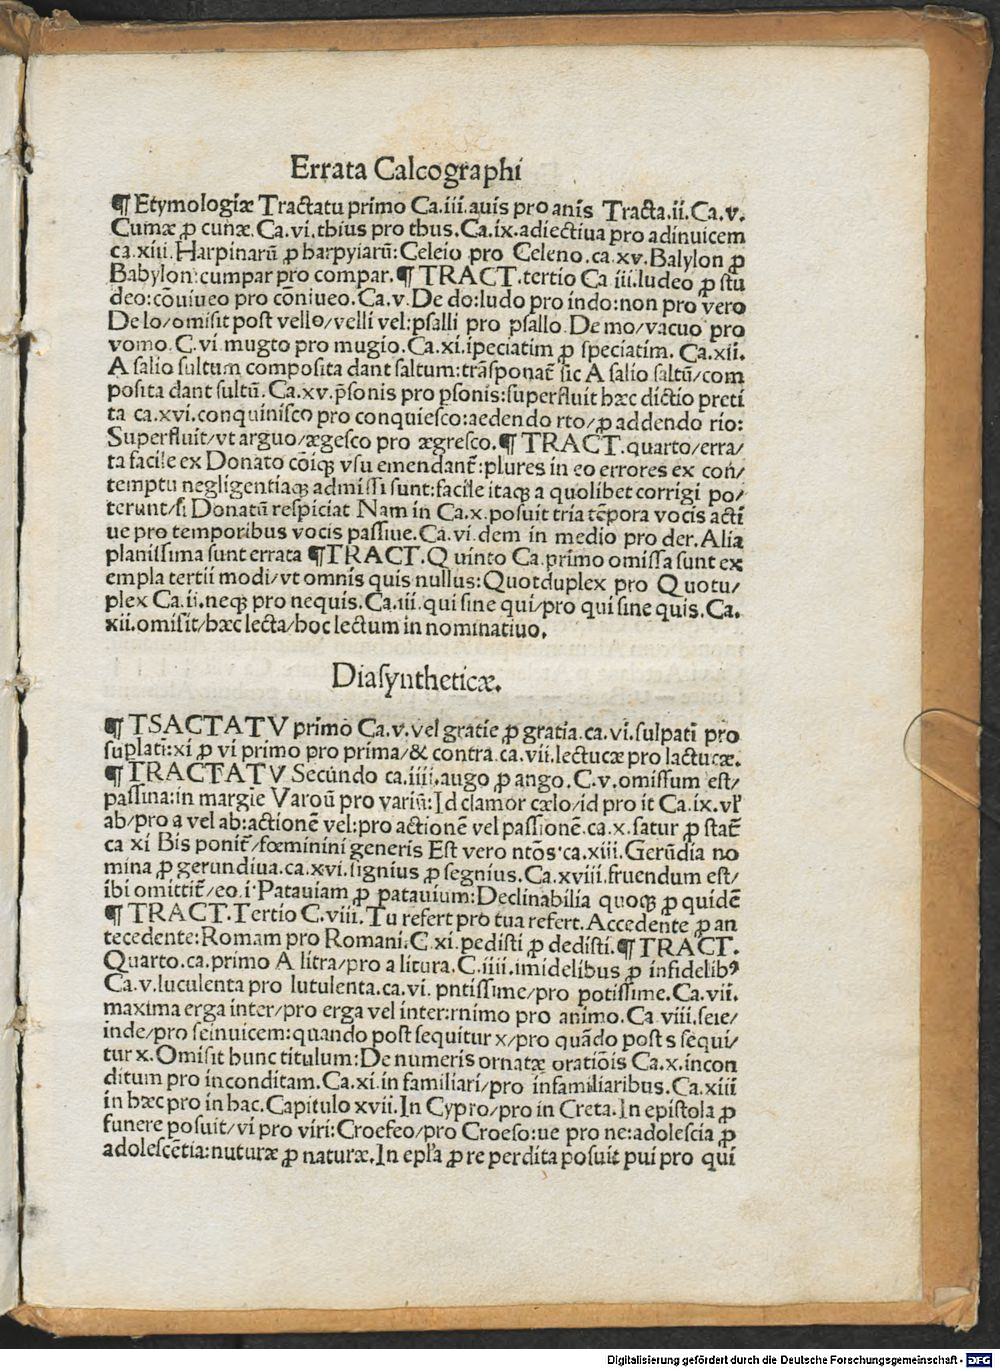 Errata Calcographi
¶ Etymologiæ Tractatu primo Ca.iii.auis pro anis Tracta.ii.Ca.v.
Cumæ ꝓ cunæ.Ca.vi.tbius pro tbus.Ca.ix.adiectiua pro adinuicem
ca.xiii.Harpinarū ꝓ harpyiarū:Celeio pro Celeno.ca.xv.Balylon ꝓ
Babylon:cumpar pro compar.¶ TRACT.tertio Ca iii.ludeo ꝓ stu
deo:cōuiueo pro cōniueo.Ca.v.De do:ludo pro indo:non pro vero
De lo/omisit post vello/velli vel:psalli pro psallo De mo/vacuo pro
vomo.C.vi mugto pro mugio.Ca.xi.ipeciatim ꝓ speciatim. Ca.xii.
A salio sultum composita dant saltum:trāsponat̄ sic A salio saltū/com
posita dant sultū.Ca.xv.p̄sonis pro psonis:superfluit hæc dictio preti
ta ca.xvi.conquinisco pro conquiesco:aedendo rto/ꝓ addendo rio:
Superfluit/vt arguo/ægesco pro ægresco.¶ TRACT.quarto/erra/
ta facile ex Donato cōiqꝫ vsu emendant̄:plures in eo errores ex con/
temptu negligentiaqꝫ admissi sunt:facile itaqꝫ a quolibet corrigi po/
terunt/si Donatū respiciat Nam in Ca.x.posuit tria tēpora vocis acti
ue pro temporibus vocis passiue.Ca.vi.dem in medio pro der.Alia
planissima sunt errata ¶TRACT.Quinto Ca.primo omissa sunt ex
empla tertii modi/vt omnis quis nullus:Quotduplex pro Quotu/
plex Ca.ii.neqꝫ pro nequis.Ca.iii.qui sine qui/pro qui sine quis.Ca.
xii.omisit/hæc lecta/hoc lectum in nominatiuo.
Diasyntheticæ.
¶ TSACTATV primo Ca.v.vel gratie ꝓ gratia.ca.vi.sulpati pro
suplati:xi ꝓ vi primo pro prima/& contra.ca.vii.lectucæ pro lactucæ.
¶ TRACTATV Secundo ca.iiii.augo ꝓ ango.C.v.omissum est/
passina:in margie Varoū pro variū:Id clamor cælo/id pro it Ca.ix.vl'
ab/pro a vel ab:actionē vel:pro actionē vel passionē.ca.x.satur ꝓ stat̄
ca xi Bis ponit̄/fœminini generis Est vero ntōs.ca.xiii.Gerūdia no
mina ꝓ gerundiua.ca.xvi.signius ꝓ segnius.Ca.xviii.fruendum est/
ibi omittit̄/eo.i.Patauiam ꝓ patauium:Declinabilia quoqꝫ ꝓ quidē
¶ TRACT.Tertio C.viii.Tu refert pro tua refert.Accedente ꝓ an
tecedente:Romam pro Romani.C.xi.pedisti ꝓ dedisti.¶TRACT.
Quarto.ca.primo A litra/pro a litura.C.iiii.imidelibus ꝓ infidelibꝰ
Ca.v.luculenta pro lutulenta.ca.vi.pntissime/pro potissime.Ca.vii.
maxima erga inter/pro erga vel inter:rnimo pro animo.Ca.viii.seie/
inde/pro seinuicem:quando post sequitur x/pro quādo post s sequi/
tur x.Omisit hunc titulum:De numeris ornatæ oratiōis Ca.x.incon
ditum pro inconditam.Ca.xi.in familiari/pro infamiliaribus.Ca.xiii
in hæc pro in hac.Capitulo xvii.In Cypro/pro in Creta.In epistola ꝓ
funere posuit/vi pro viri:Croefeo/pro Croeso:ue pro ne:adolescia ꝓ
adolescētia:nuturæ ꝓ naturæ.In epl'a ꝓ re perdita posuit pui pro qui
Digitalisierung gefördert durch die Deutsche Forschungsgemeinschaft - DFG